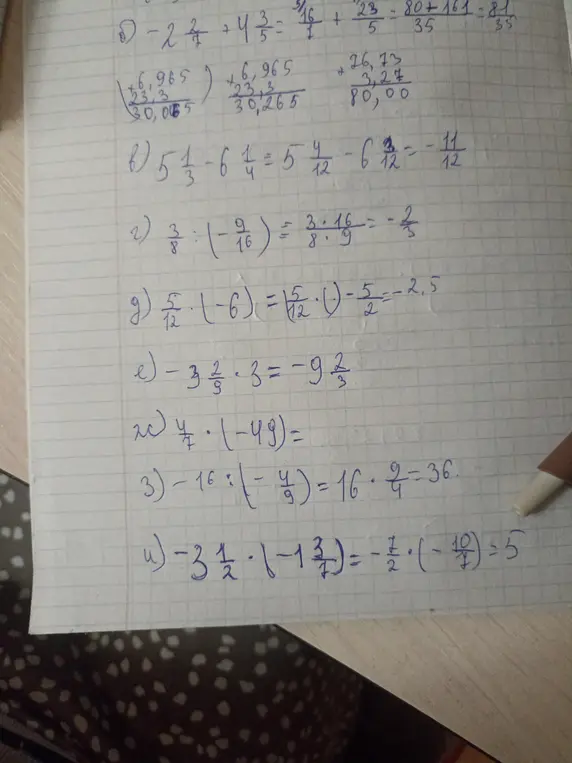 б) -2 2/7 + 4 3/5 = 16/7 + 23/5 = 80+161/35 = 81/35
+6,965 +6,965 +76,73
23,3 23,3 3,27
30,265 80,00
в) 5 1/3 - 6 1/4 = 5 4/12 - 6 3/12 = - 11/12
г) 3/8 : (- 9/16) = 3·16/8·9 = - 2/3
д) 5/12 · (-6) = (5/12 · ( ) - 5/2 = -2,5
е) -3 2/9 · 3 = -9 2/3
ж) 4/7 · (-49) =
з) -16 : (- 4/9) = 16 · 9/4 = 36.
и) -3 1/2 · (-1 3/7) = - 7/2 · (- 10/7) = 5